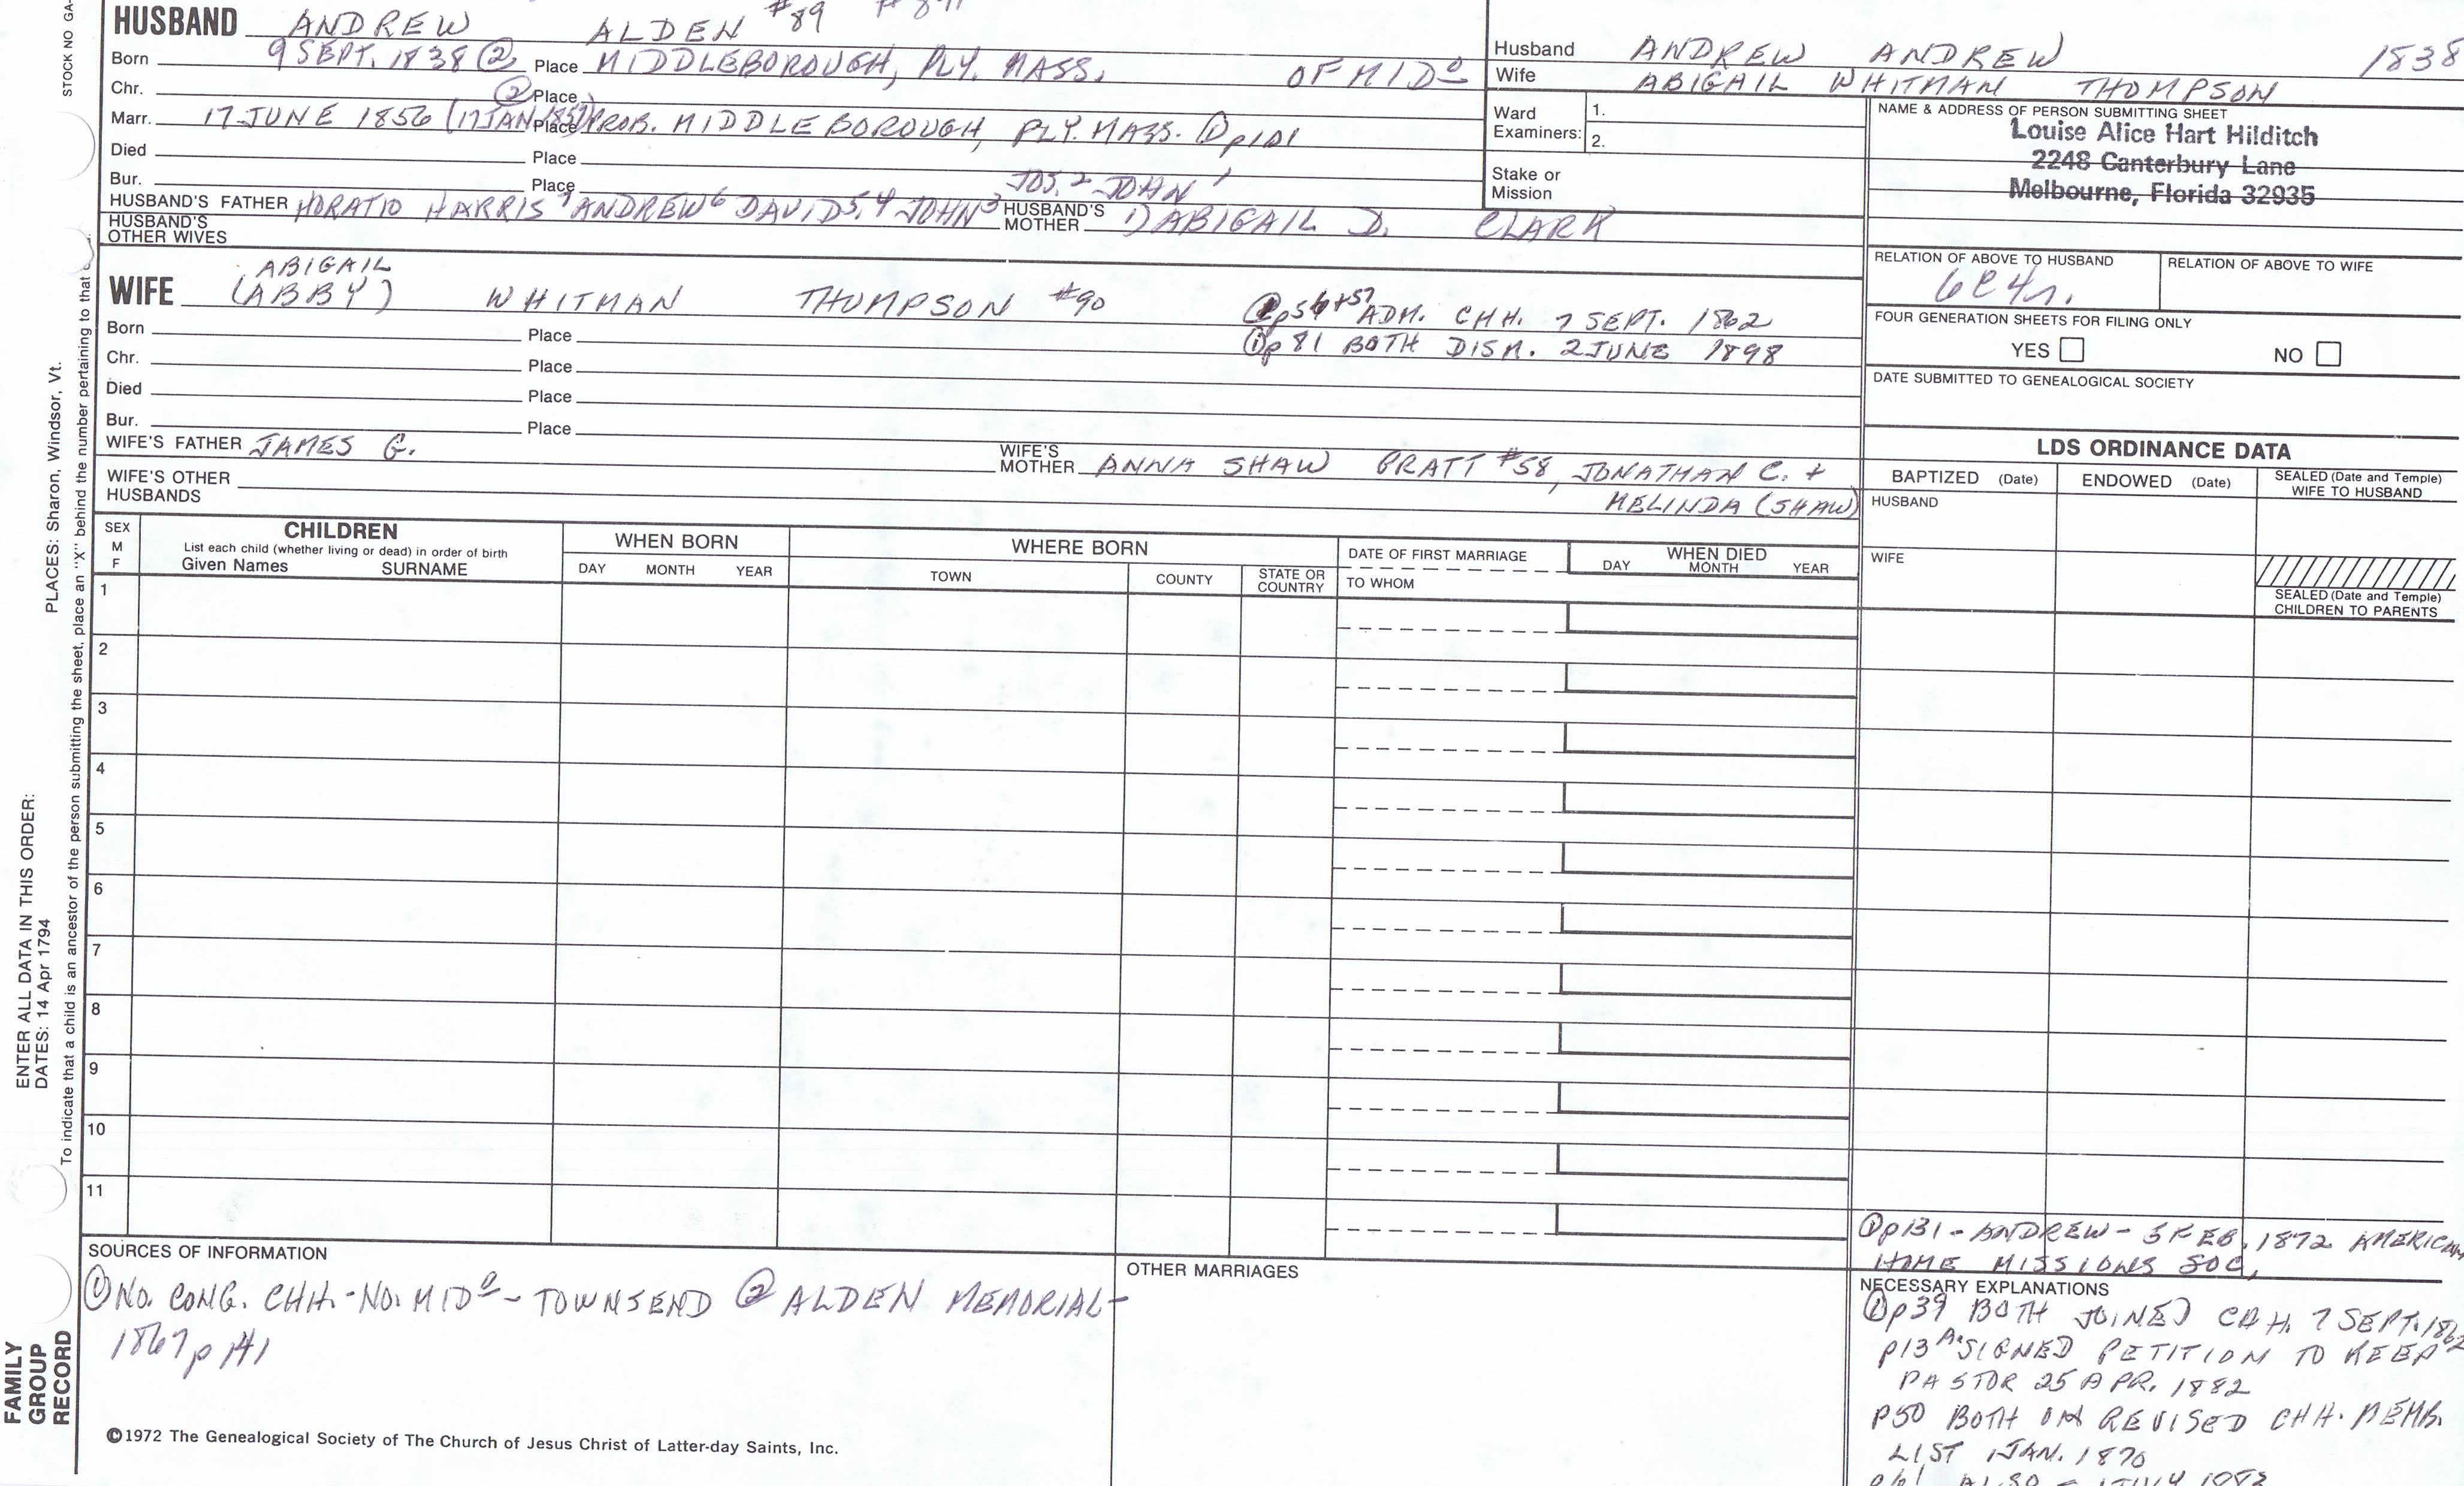 STOCK NO GA-
HUSBAND ANDREW ALDEN #89
Born 9 SEPT. 1838 ② Place MIDDLEBOROUGH, PLY. MASS. OF MIDO
Chr. ② Place
Marr. 17 JUNE 1856 (17 JAN 1857) Place PROB. MIDDLEBOROUGH, PLY. MASS. ① p101
Died Place
Bur. Place JOS.2 JOHN1
HUSBAND'S FATHER HORATIO HARRIS7 ANDREW6 DAVID5,4 JOHN3 HUSBAND'S MOTHER 1) ABIGAIL D. CLARK
HUSBAND'S OTHER WIVES
Husband ANDREW ANDREW 1838
Wife ABIGAIL WHITMAN THOMPSON
Ward Examiners: 1.
2.
Stake or Mission
NAME & ADDRESS OF PERSON SUBMITTING SHEET
Louise Alice Hart Hilditch
2248 Canterbury Lane
Melbourne, Florida 32935
ABIGAIL
WIFE (ABBY) WHITMAN THOMPSON #90
p56+57 ADM. CHH. 7 SEPT. 1862
① p81 BOTH DISM. 2 JUNE 1898
Born Place
Chr. Place
Died Place
Bur. Place
WIFE'S FATHER JAMES G. WIFE'S MOTHER ANNA SHAW PRATT #58, JONATHAN C. +
MELINDA (SHAW)
WIFE'S OTHER HUSBANDS
RELATION OF ABOVE TO HUSBAND RELATION OF ABOVE TO WIFE
6C4r.
FOUR GENERATION SHEETS FOR FILING ONLY
YES NO
DATE SUBMITTED TO GENEALOGICAL SOCIETY
LDS ORDINANCE DATA
BAPTIZED (Date) ENDOWED (Date) SEALED (Date and Temple) WIFE TO HUSBAND
HUSBAND
WIFE
SEALED (Date and Temple) CHILDREN TO PARENTS
SEX M F
CHILDREN
List each child (whether living or dead) in order of birth
Given Names SURNAME
WHEN BORN
DAY MONTH YEAR
WHERE BORN
TOWN COUNTY STATE OR COUNTRY
DATE OF FIRST MARRIAGE
TO WHOM
WHEN DIED
DAY MONTH YEAR
1
2
3
4
5
6
7
8
9
10
11
SOURCES OF INFORMATION
① NO. CONG. CHH. - NO. MIDO - TOWNSEND ② ALDEN MEMORIAL -
1867 p 141
OTHER MARRIAGES
① p131 - ANDREW - 5 FEB. 1872 AMERICAN
HOME MISSIONS SOC.
NECESSARY EXPLANATIONS
① p39 BOTH JOINED CHH. 7 SEPT. 1862
p13 A. SIGNED PETITION TO KEEP
PASTOR 25 APR. 1882
p50 BOTH ON REVISED CHH. MEMB.
LIST 1 JAN. 1870
©1972 The Genealogical Society of The Church of Jesus Christ of Latter-day Saints, Inc.
FAMILY GROUP RECORD
ENTER ALL DATA IN THIS ORDER:
DATES: 14 Apr 1794 PLACES: Sharon, Windsor, Vt.
To indicate that a child is an ancestor of the person submitting the sheet, place an "X" behind the number pertaining to that